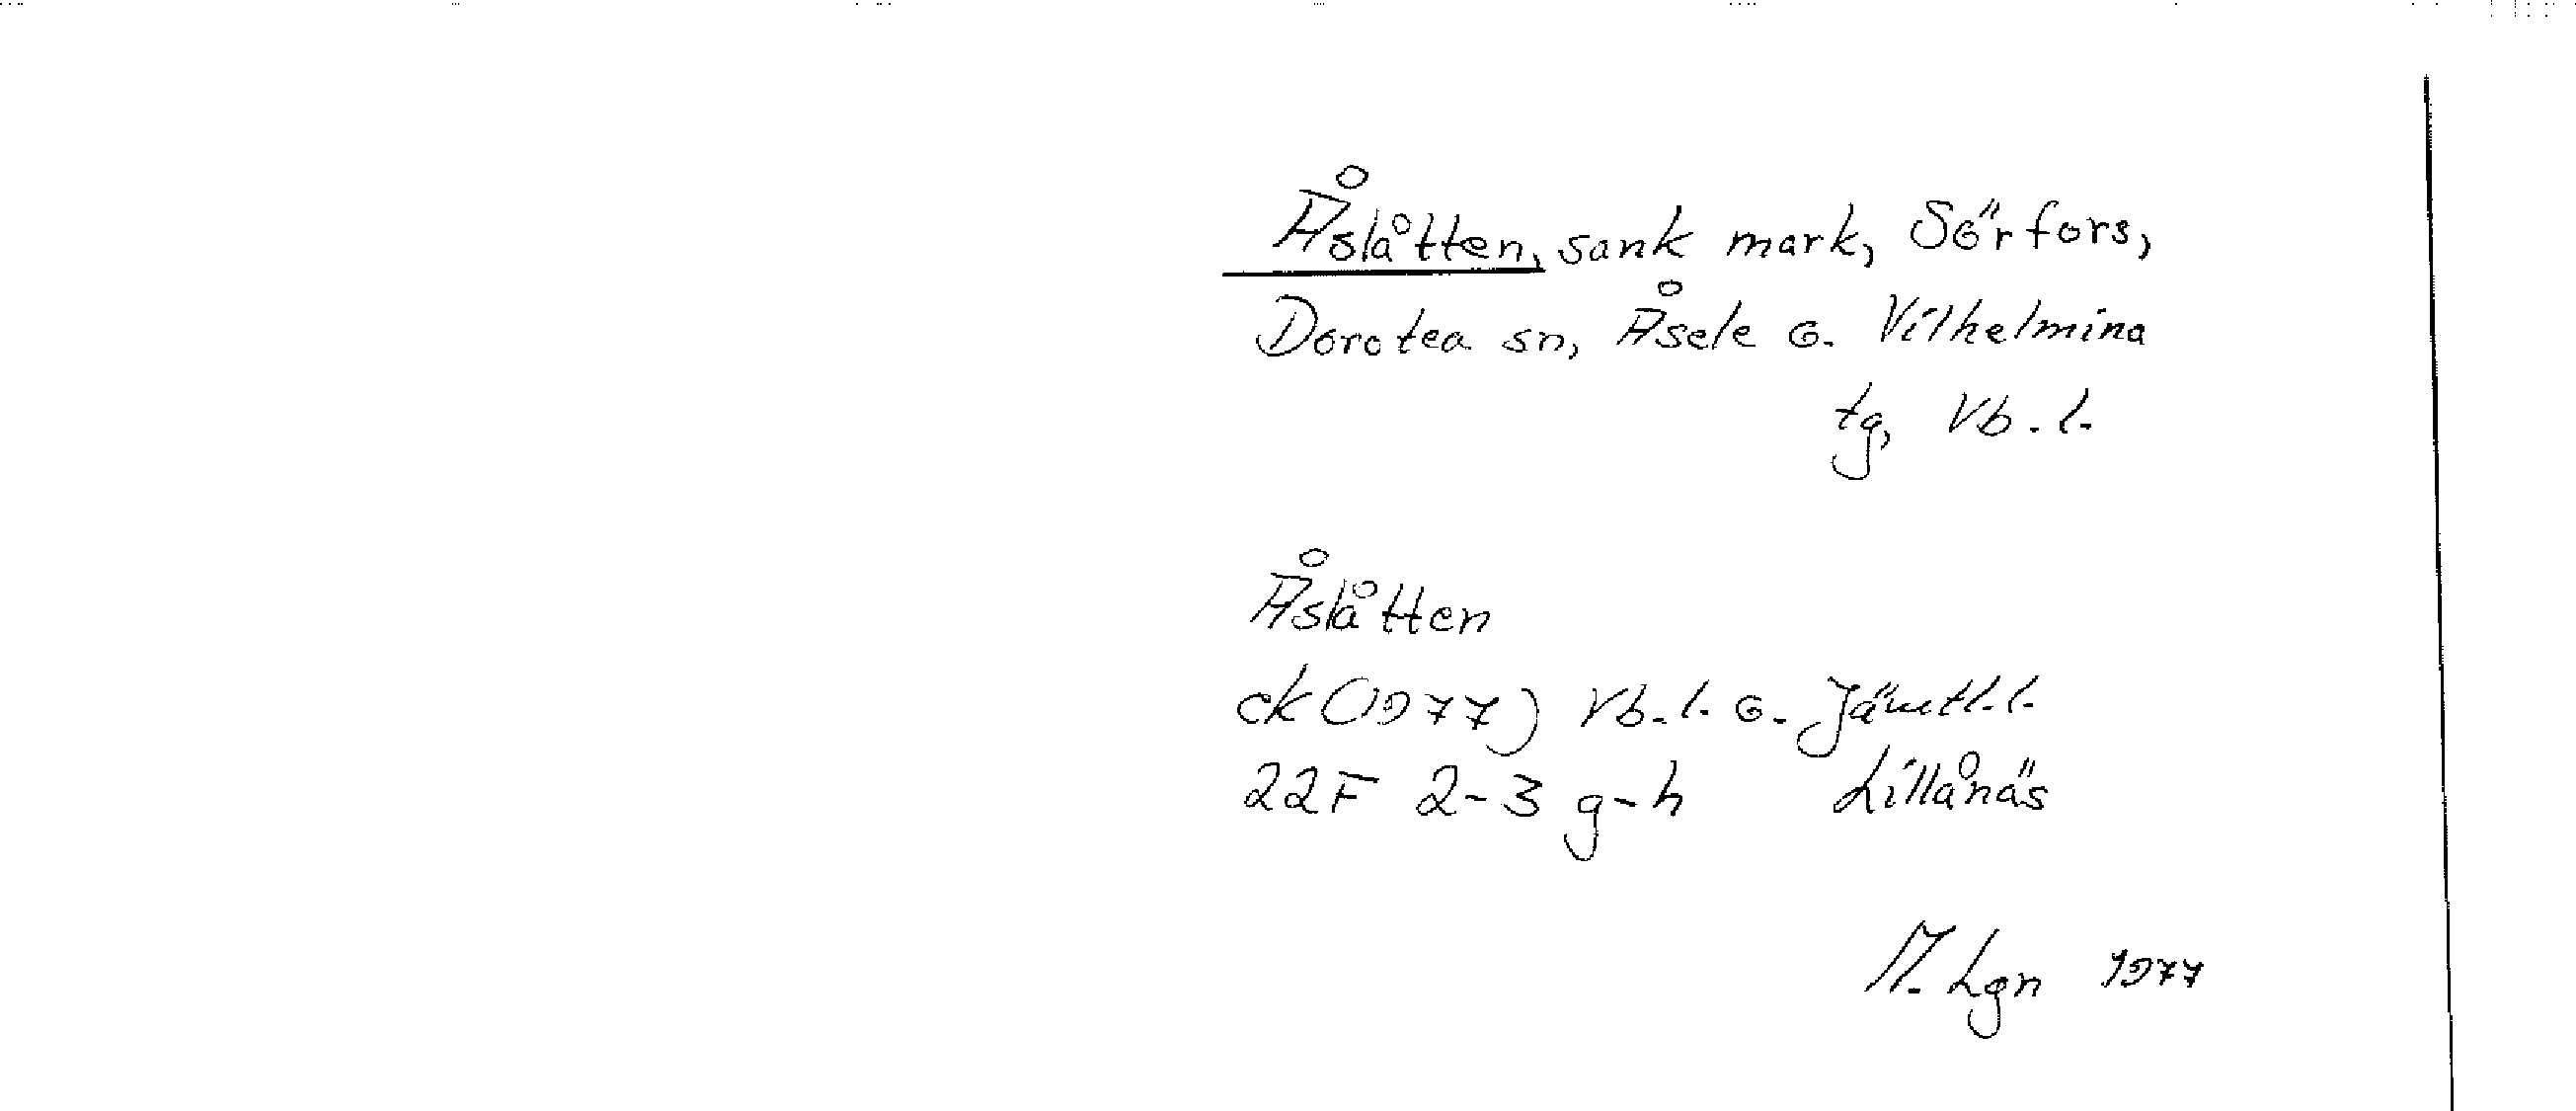 Åslåtten, sank mark, Sörfors,
Dorotea sn, Åsele o. Vilhelmina
tg, Vb. l.
Åslåtten
ek (1977) Vb. l. o. Jämtl. l.
22F 2-3 g-h Lillånäs
M. Lgn 1977